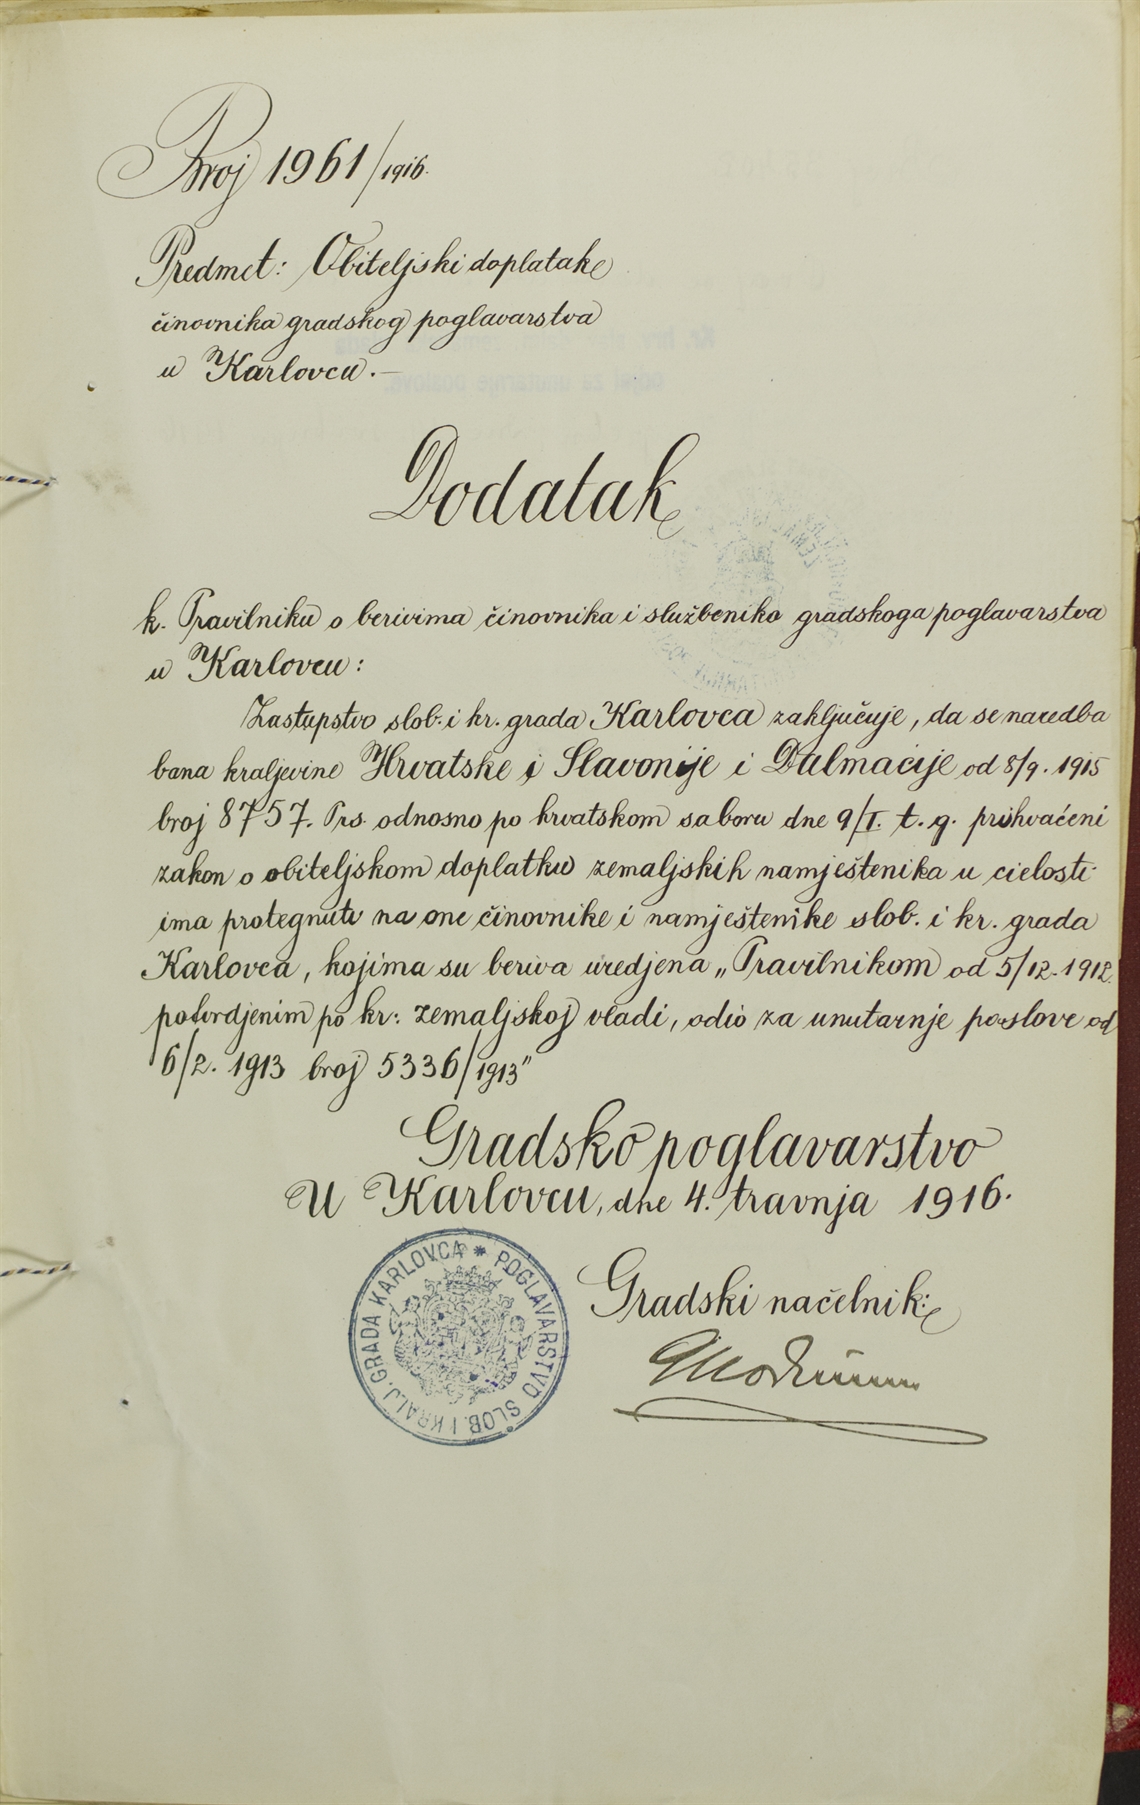 Broj 1961/1916.
Predmet: Obiteljski doplatak
činovnika gradskog poglavarstva
u Karlovcu.—
Dodatak
k. Pravilniku o berivima činovnika i službenika gradskoga poglavarstva
u Karlovcu:
Zastupstvo slob. i kr. grada Karlovca zaključuje, da se naredba
bana kraljevine Hrvatske i Slavonije i Dalmacije od 8/9. 1915
broj 8757. Prs. odnosno po hrvatskom saboru dne 9/I. t. g. prihvaćeni
zakon o obiteljskom doplatku zemaljskih namještenika u cielosti
ima protegnuti na one činovnike i namještenike slob. i kr. grada
Karlovca, kojima su beriva uredjena „Pravilnikom od 5/12. 1912.
potvrdjenim po kr: zemaljskoj vladi, odio za unutarnje poslove od
6/2. 1913 broj 5336/1913"
Gradsko poglavarstvo
U Karlovcu, dne 4. travnja 1916.
POGLAVARSTVO SLOB. I KRALJ. GRADA KARLOVCA *
Gradski načelnik: